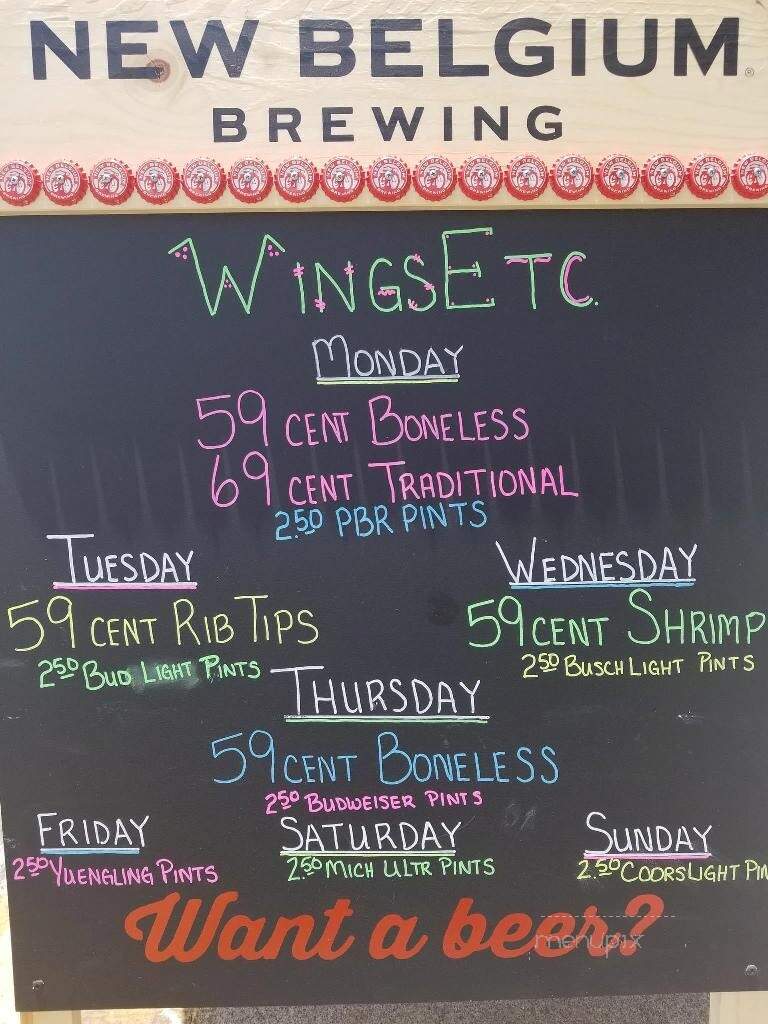 NEW BELGIUM®
BREWING
WINGSETC.
MONDAY
59 CENT BONELESS
69 CENT TRADITIONAL
2.50 PBR PINTS
TUESDAY
59 CENT RIB TIPS
2.50 BUD LIGHT PINTS
WEDNESDAY
59 CENT SHRIMP
2.50 BUSCH LIGHT PINTS
THURSDAY
59 CENT BONELESS
2.50 BUDWEISER PINTS
FRIDAY
2.50 YUENGLING PINTS
SATURDAY
2.50 MICH ULTR PINTS
SUNDAY
2.50 COORSLIGHT PIN
Want a beer?
menupix